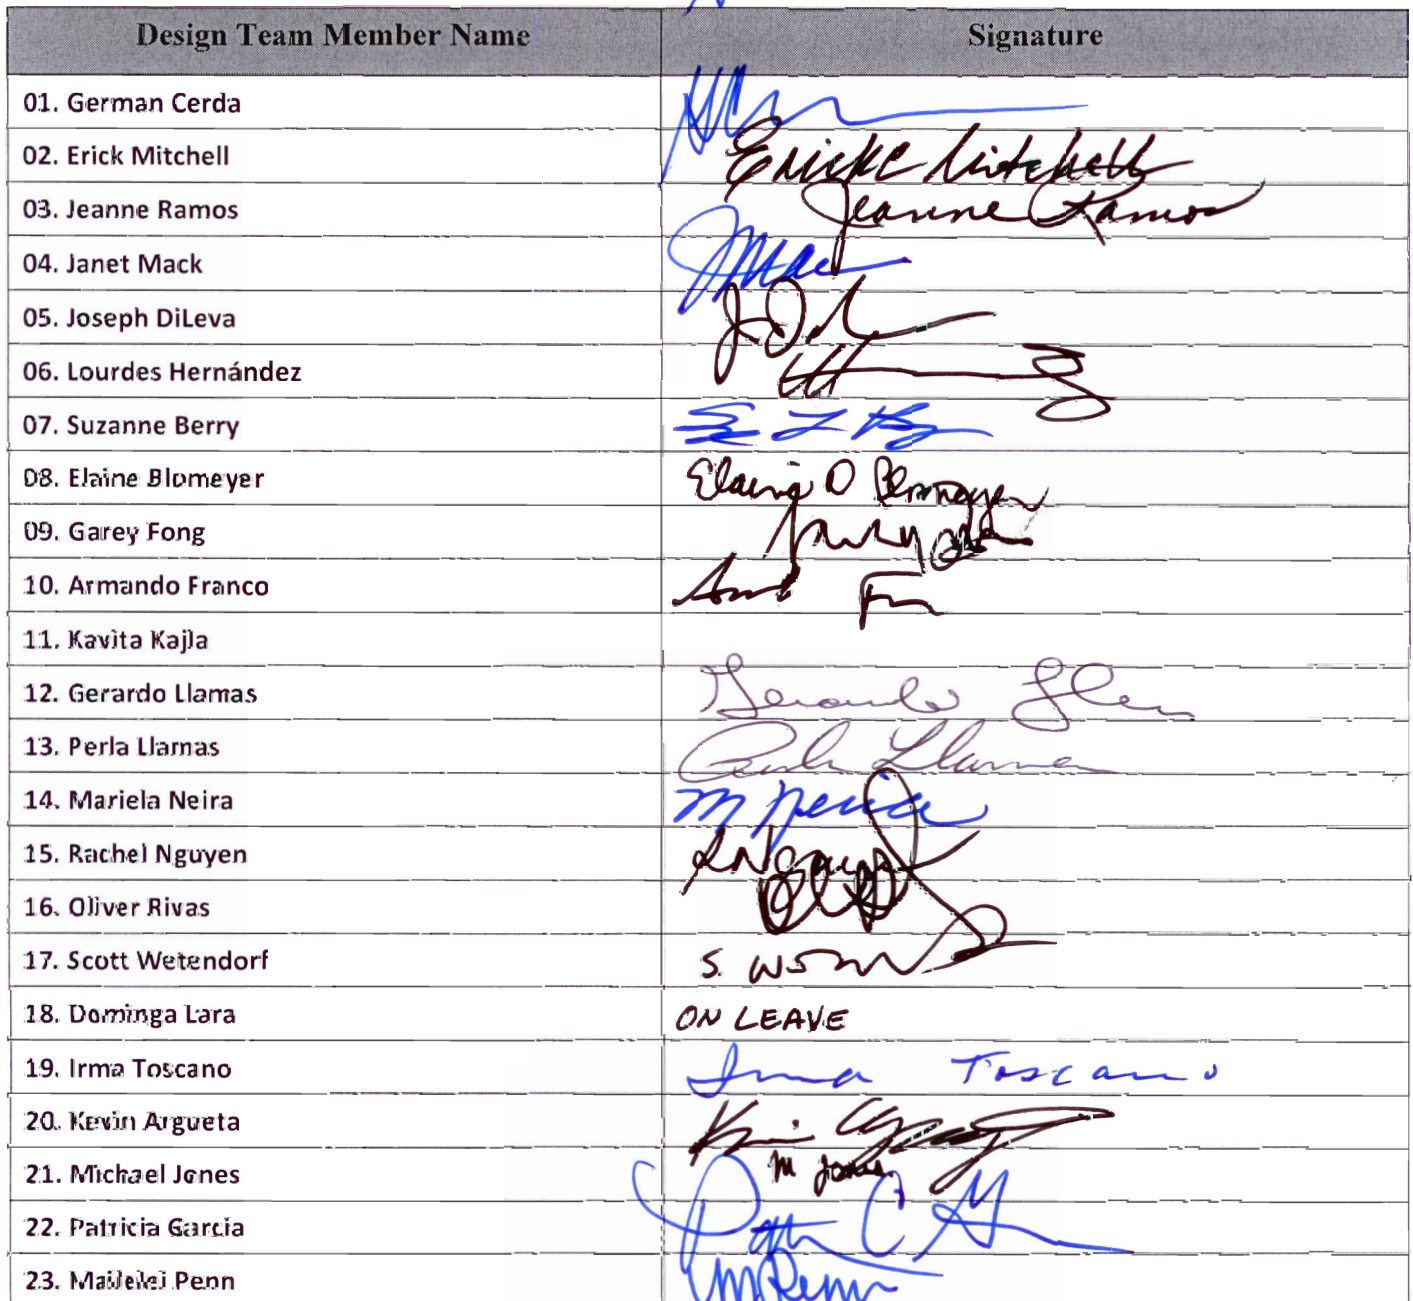 Design Team Member Name Signature
01. German Cerda
02. Erick Mitchell Erick Mitchell
03. Jeanne Ramos Jeanne Ramos
04. Janet Mack JMac
05. Joseph DiLeva
06. Lourdes Hernández
07. Suzanne Berry
08. Elaine Blomeyer Elaine D Blomeyer
09. Garey Fong
10. Armando Franco
11. Kavita Kajla
12. Gerardo Llamas Gerardo
13. Perla Llamas Perla Llamas
14. Mariela Neira M Neira
15. Rachel Nguyen RNguyen
16. Oliver Rivas
17. Scott Wetendorf S.
18. Dominga Lara ON LEAVE
19. Irma Toscano Irma Toscano
20. Kevin Argueta
21. Michael Jones M Jones
22. Patricia Garcia
23. Mailelei Penn MPenn